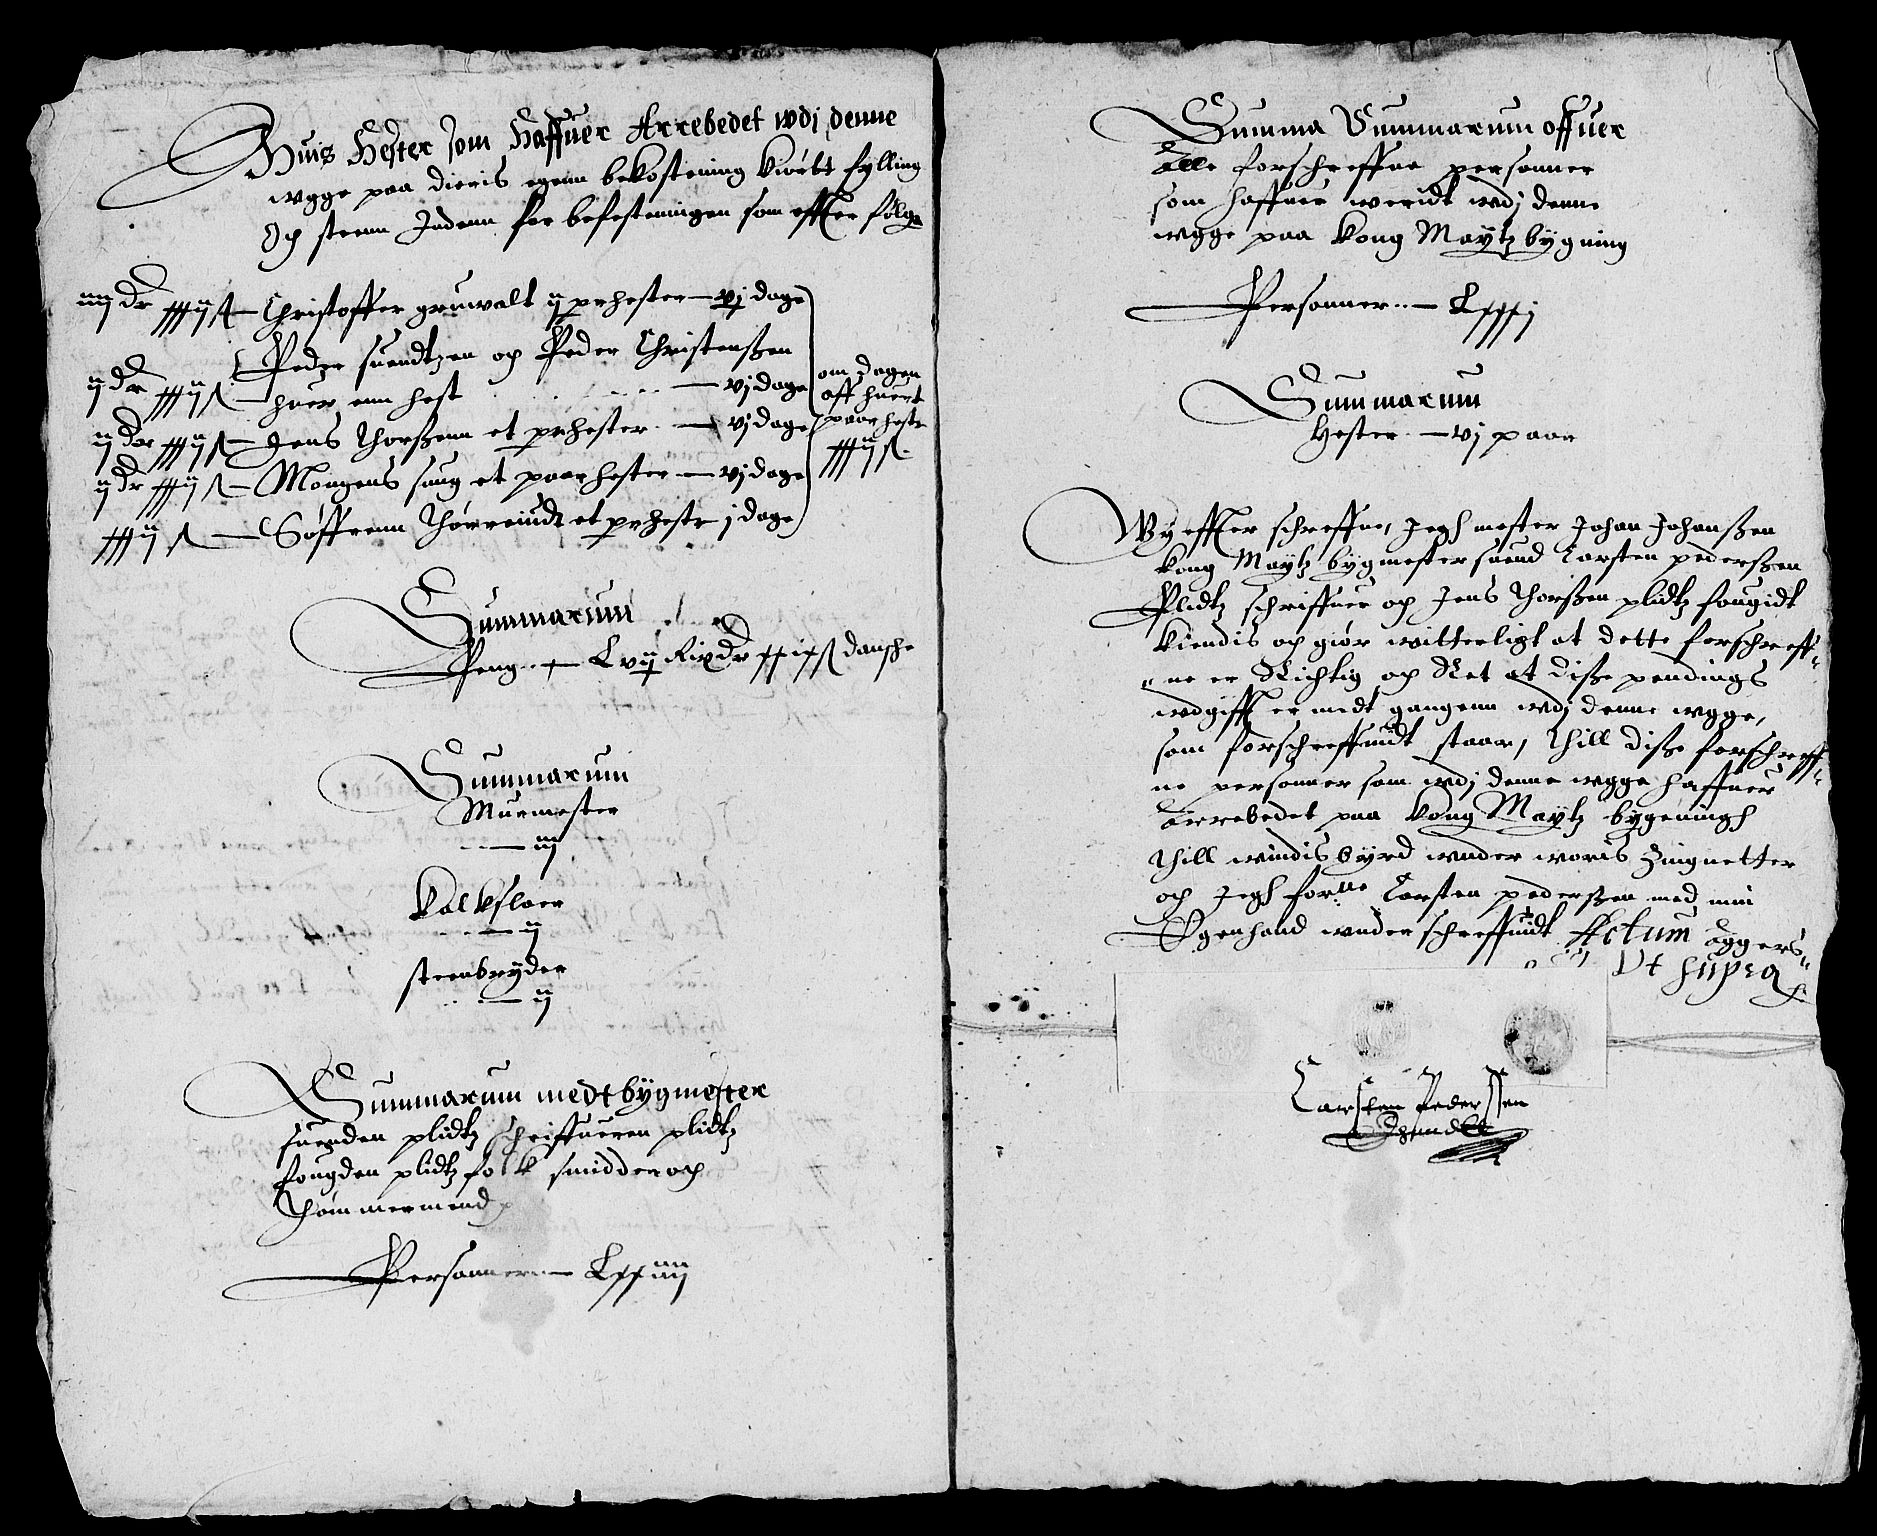 Huis Hester som Haffuer Arrebedet wdj denne
wgge paa dieris egenn bekostening kiørtt fylling
Och steenn Indenn for befesteningen som effter følger
iiij dr xxxij ß — Christoffer gruwalt ij pr hester — vj dage
Peder suendtzen och Peder Christenßen
ij dr xxxij ß — huer enn hest — vj dage
ij dr xxxij ß — Jens Thorßenn et pr hester — vj dage
ij dr xxxij ß — Mongens saug et paar hester — vj dage
xxxij ß — Søffrenn Thørreindt et pr hestr j dage
om dagen
aff huert
paar hestr
xxxij ß
Summarum
Peng — Lvij Rixdr xxixß danshe
Summarum
Murmester
— iij
Kalkslaer
— ij
steenbryder
— ij
Summarum medt bygmester
suenden plidtz schriffueren plidtz
fougden plidtz folk smidder och
Thømmermend
Personner — Lxxiiij
Summa Summarum offuer
alle forschreffne personner
som haffuer weridt wdj denne
wgge paa kong Maytz bygning
Personner — Lxxxj
Summarum
Hester — vj paar
Wy effter schreffne, Jegh mester Johan Johanßen
kong Maytz bygmester suend Carsten pederßen
Plidtz schriffuer och Jens Thorßen plidtz fougidt
kiendis och giør witterligt at dette forschreff-
ne er Richtig och Ret at diße pendings
wdgifft er medt gangenn wdj denne wgge,
som forschreffuidt staar, Thill diße forschreff-
ne personner som wdj denne wgge haffuer
arrebedet paa kong Maytz bygeningh
Thill windisbyrd wnder woris Zingnetter
och Jegh forne Carsten pederßen med min
Egenhand wnderschreffuidt Actum Aggers-
Ut supra
Carsten Pederssen